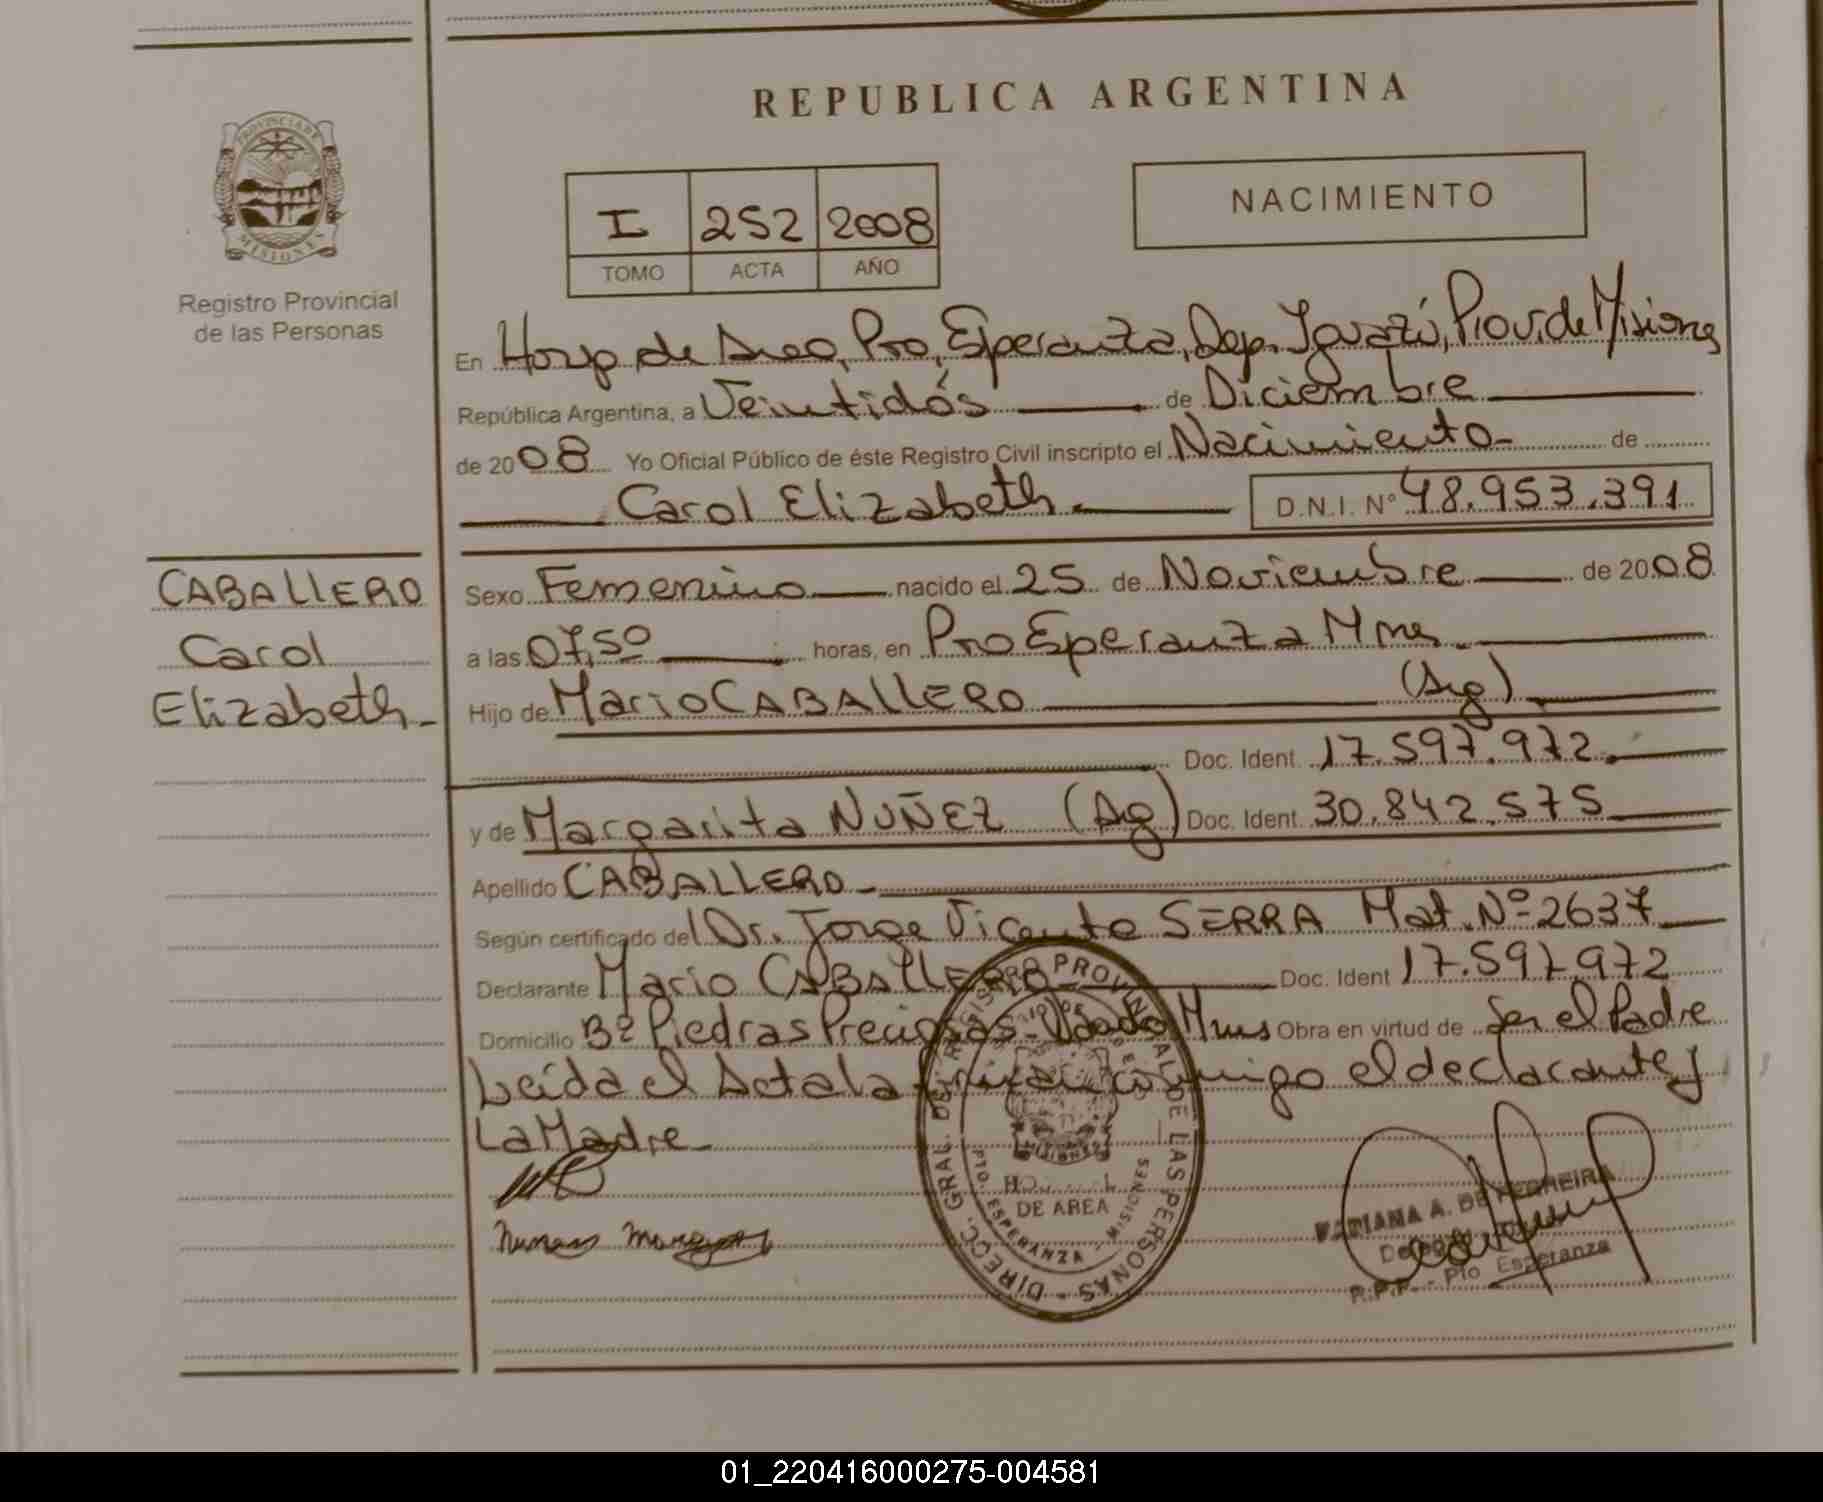 REPUBLICA ARGENTINA
PROVINCIA DE
MISIONES
Registro Provincial
de las Personas
I 252 2008
TOMO ACTA AÑO
NACIMIENTO
En Hosp de Area, Pto, Esperanza, Dep. Iguazú, Prov. de Misiones
República Argentina, a Veintidós de Diciembre
de 2008 Yo Oficial Público de éste Registro Civil inscripto el Nacimiento de
Carol Elizabeth D.N.I. N° 48.953.391
CABALLERO
Carol
Elizabeth
Sexo Femenino nacido el 25 de Noviembre de 2008
a las 07,50 horas, en Pto Esperanza Mnes
Hijo de Mario CABALLERO (Arg)
Doc. Ident. 17.597.972
y de Margarita NUÑEZ (Arg) Doc. Ident. 30.842.575
Apellido CABALLERO
Según certificado del Dr. Jorge Vicente SERRA Mat. Nº 2637
Declarante Mario CABALLERO Doc. Ident 17.597.972
Domicilio Bº Piedras Preciosas Wanda Mnes Obra en virtud de Ser el Padre
Leída el Acta la firman conmigo el declarante y
La Madre
DIRECC. GRAL. DEL REGISTRO PROVINCIAL DE LAS PERSONAS
DE AREA
PTO. ESPERANZA - MISIONES
A. DE FERREIRA
R.P.P. - Pto Esperanza
01_220416000275-004581